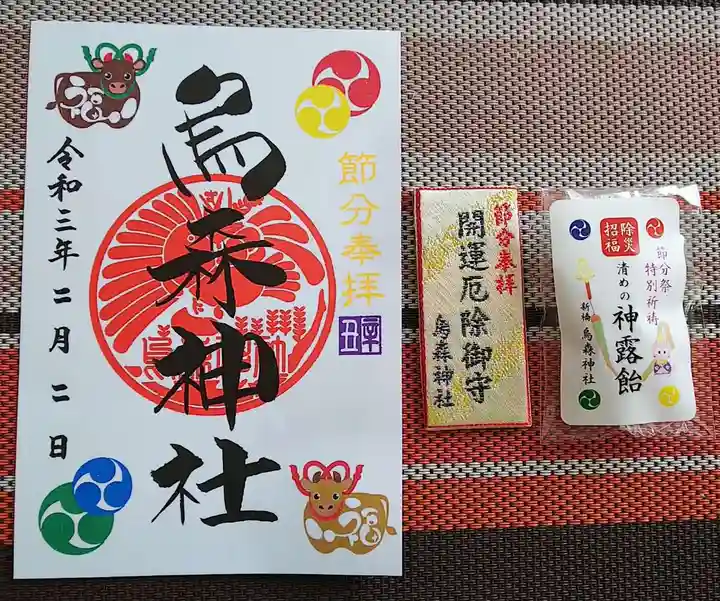 節分奉拝
辛丑
烏森神社
令和三年二月二日
節分奉拝
開運厄除御守
烏森神社
除災
招福
節分祭
特別祈祷
清めの
神露飴
新橋 烏森神社